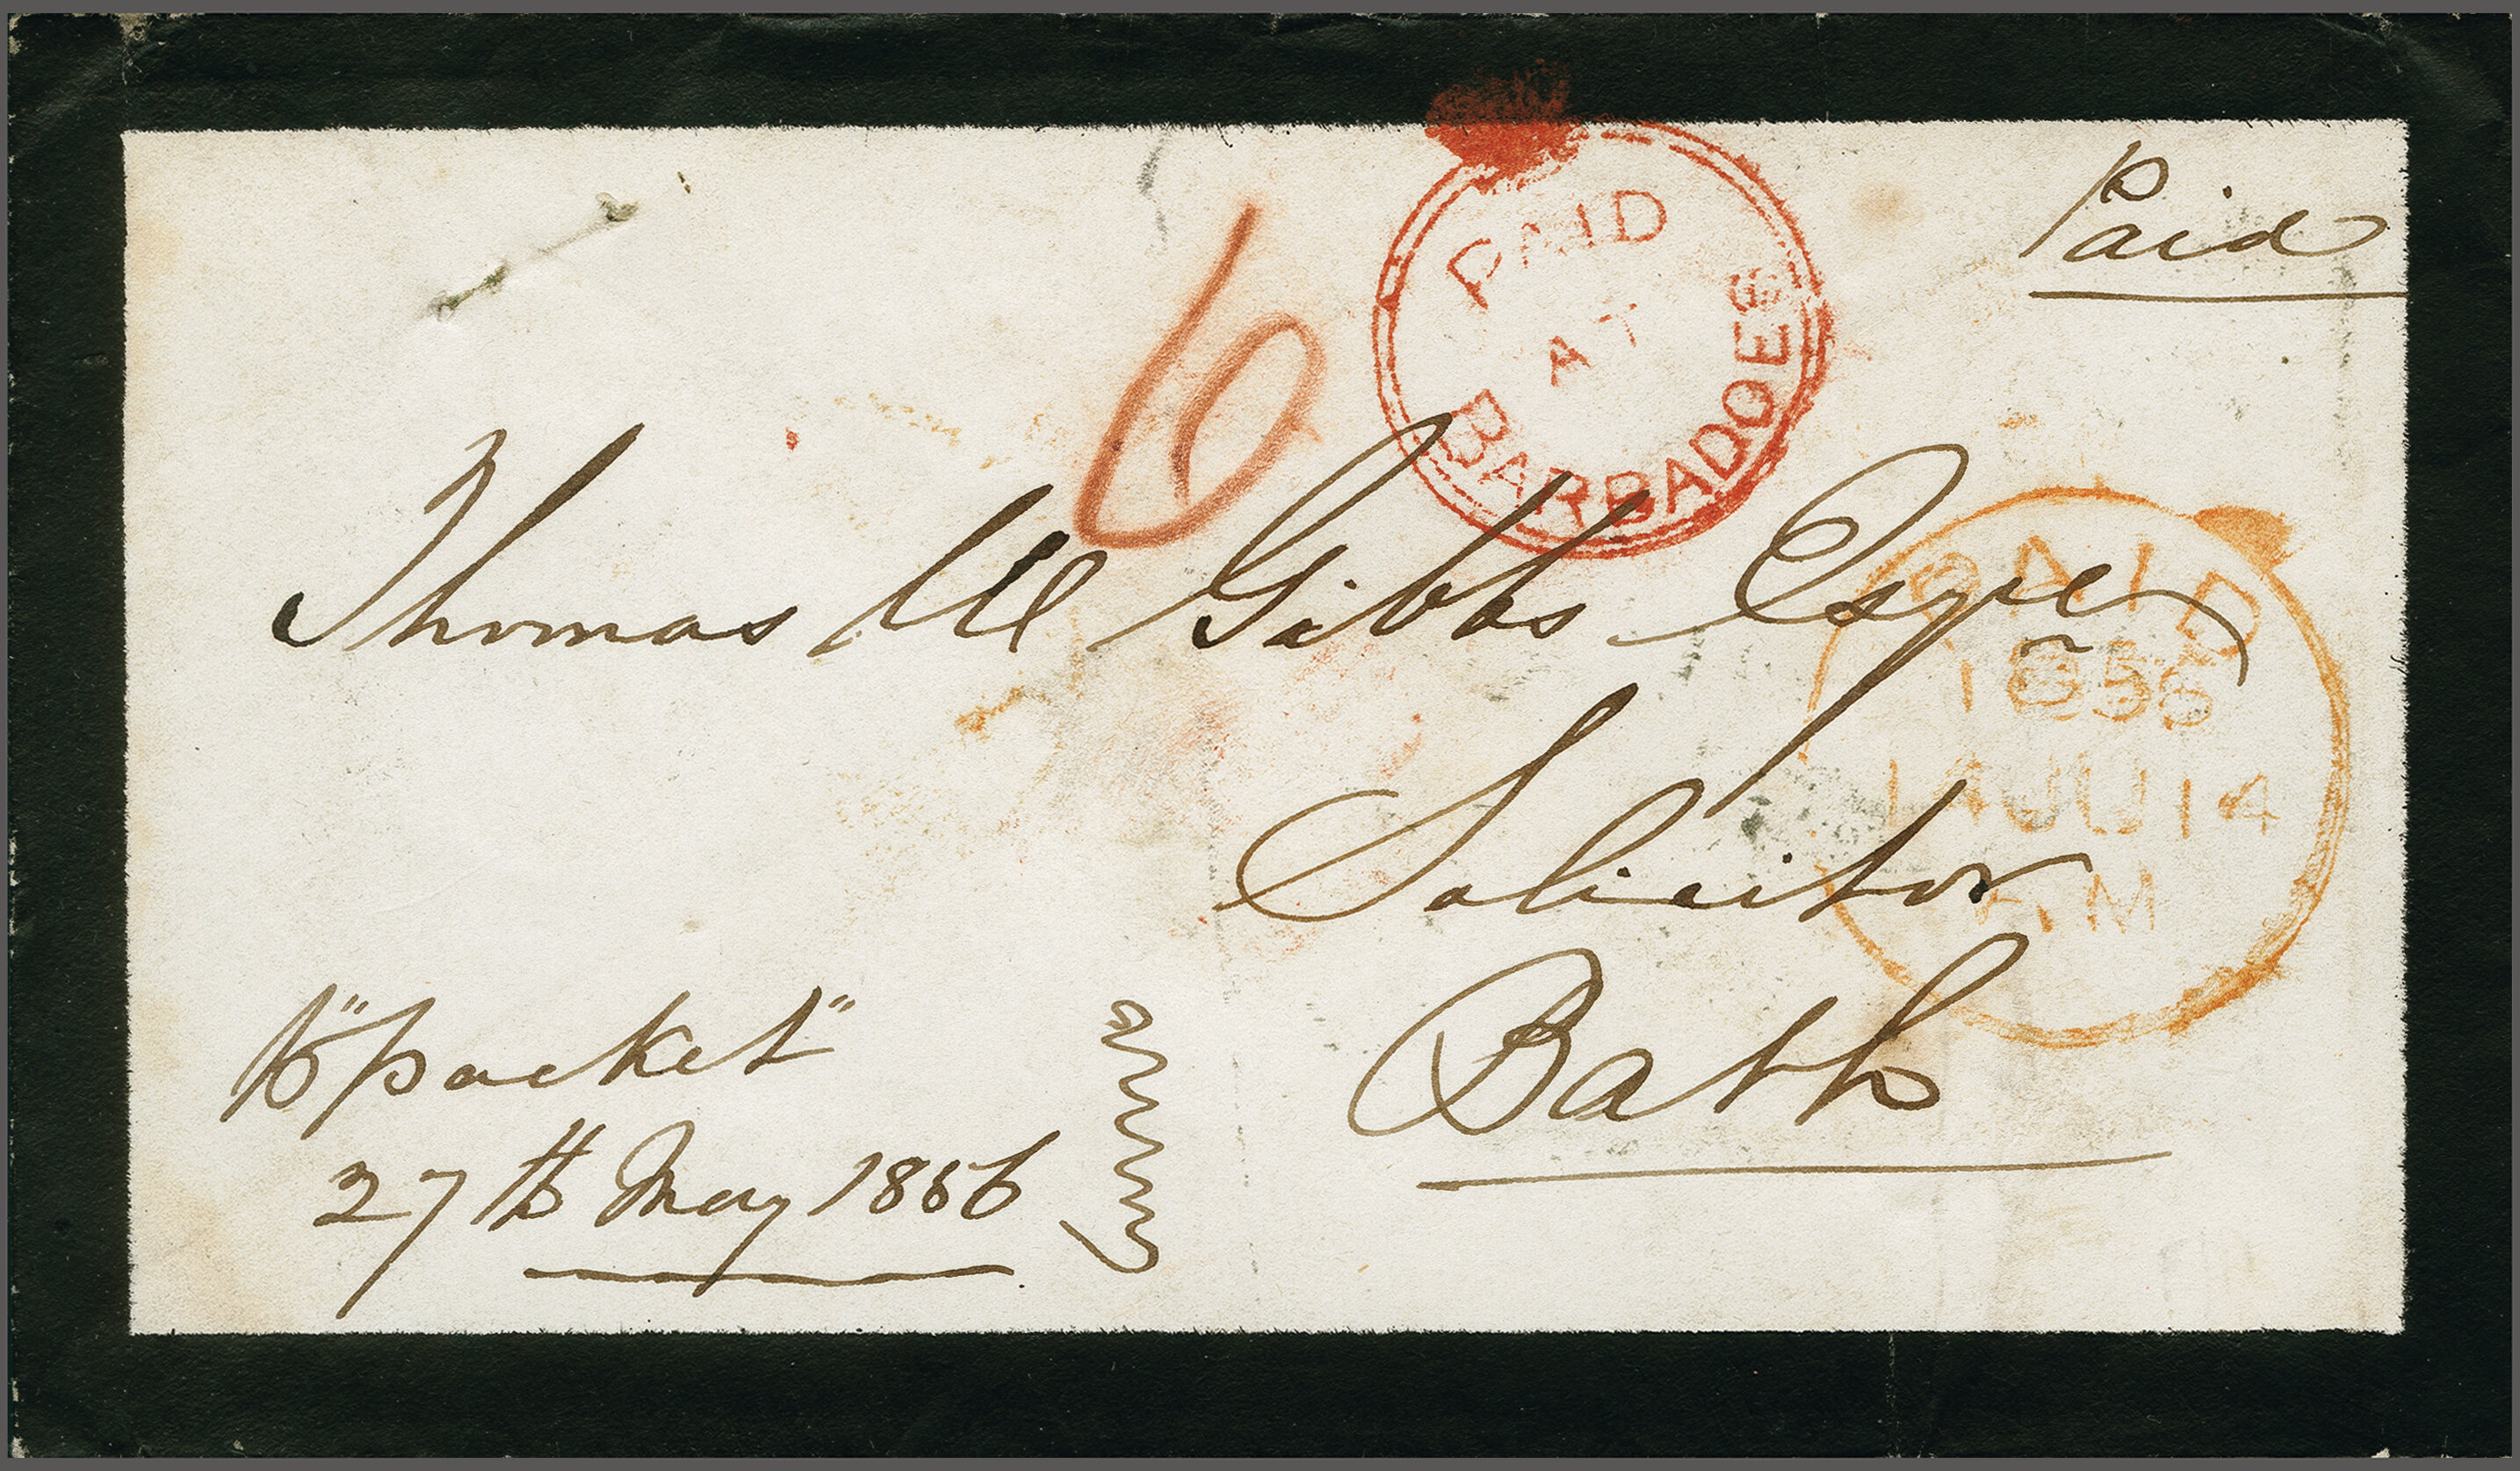 Paid
6
PAID
AT
BARBADOES
Thomas Gibbs Esqre
PAID
1856
14 JU 14
Solicitor
M
Bath
"packet"
27th May 1856